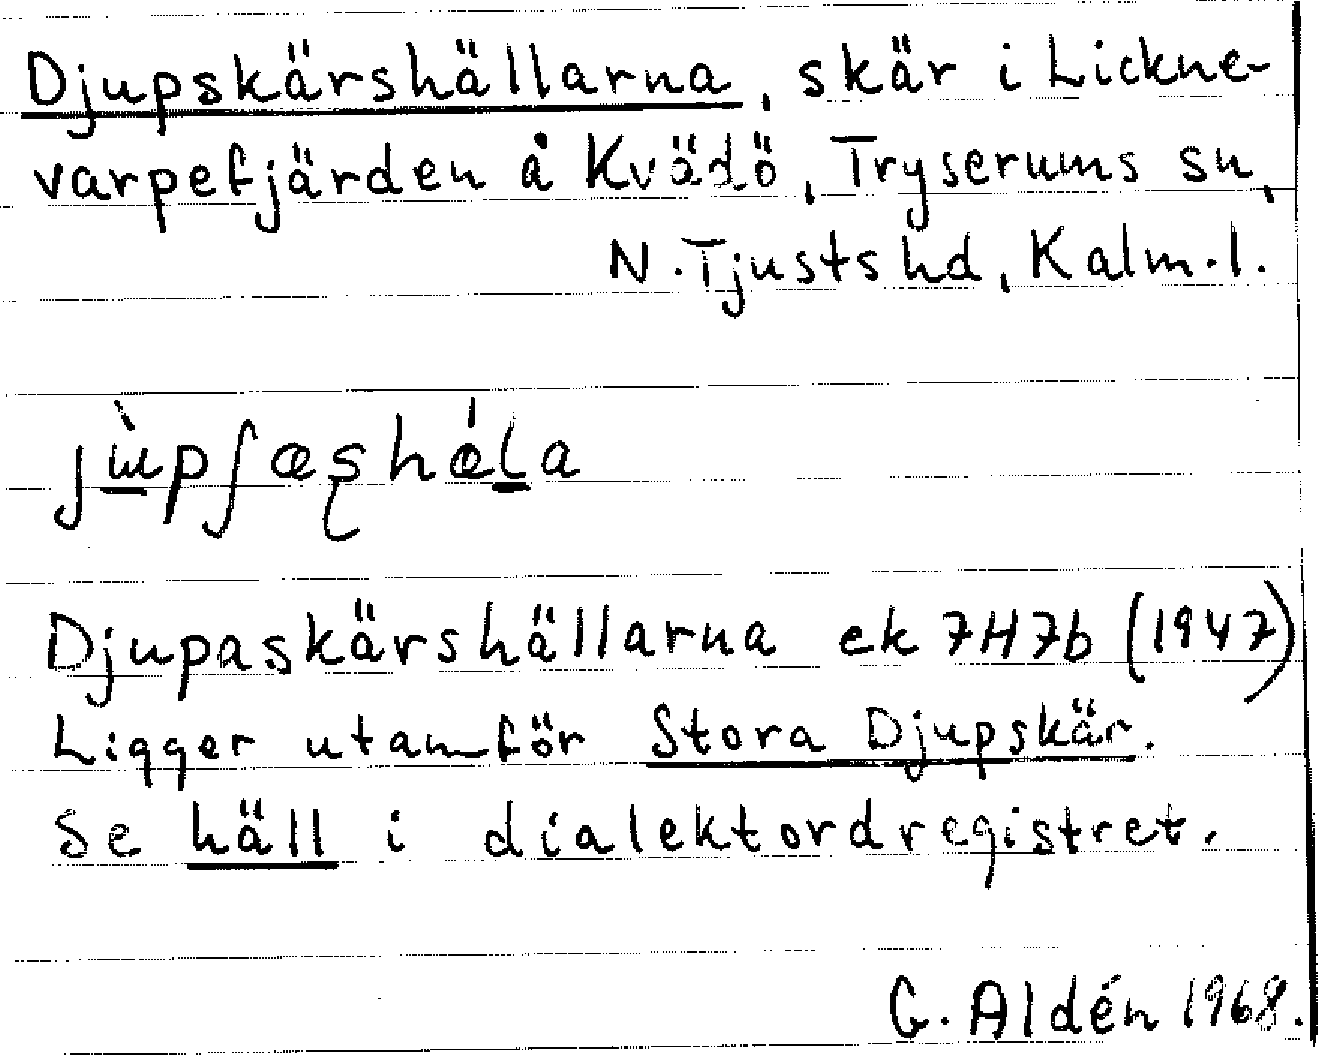 Djupskärshällarna, skär i Lickne-
varpefjärden å Kvädö, Tryserums sn,
N. Tjusts hd, Kalm. l.
Djupaskärshällarna ek 7H7b (1947)
Ligger utanför Stora Djupskär.
Se häll i dialektordregistret.
G. Aldén 1968.